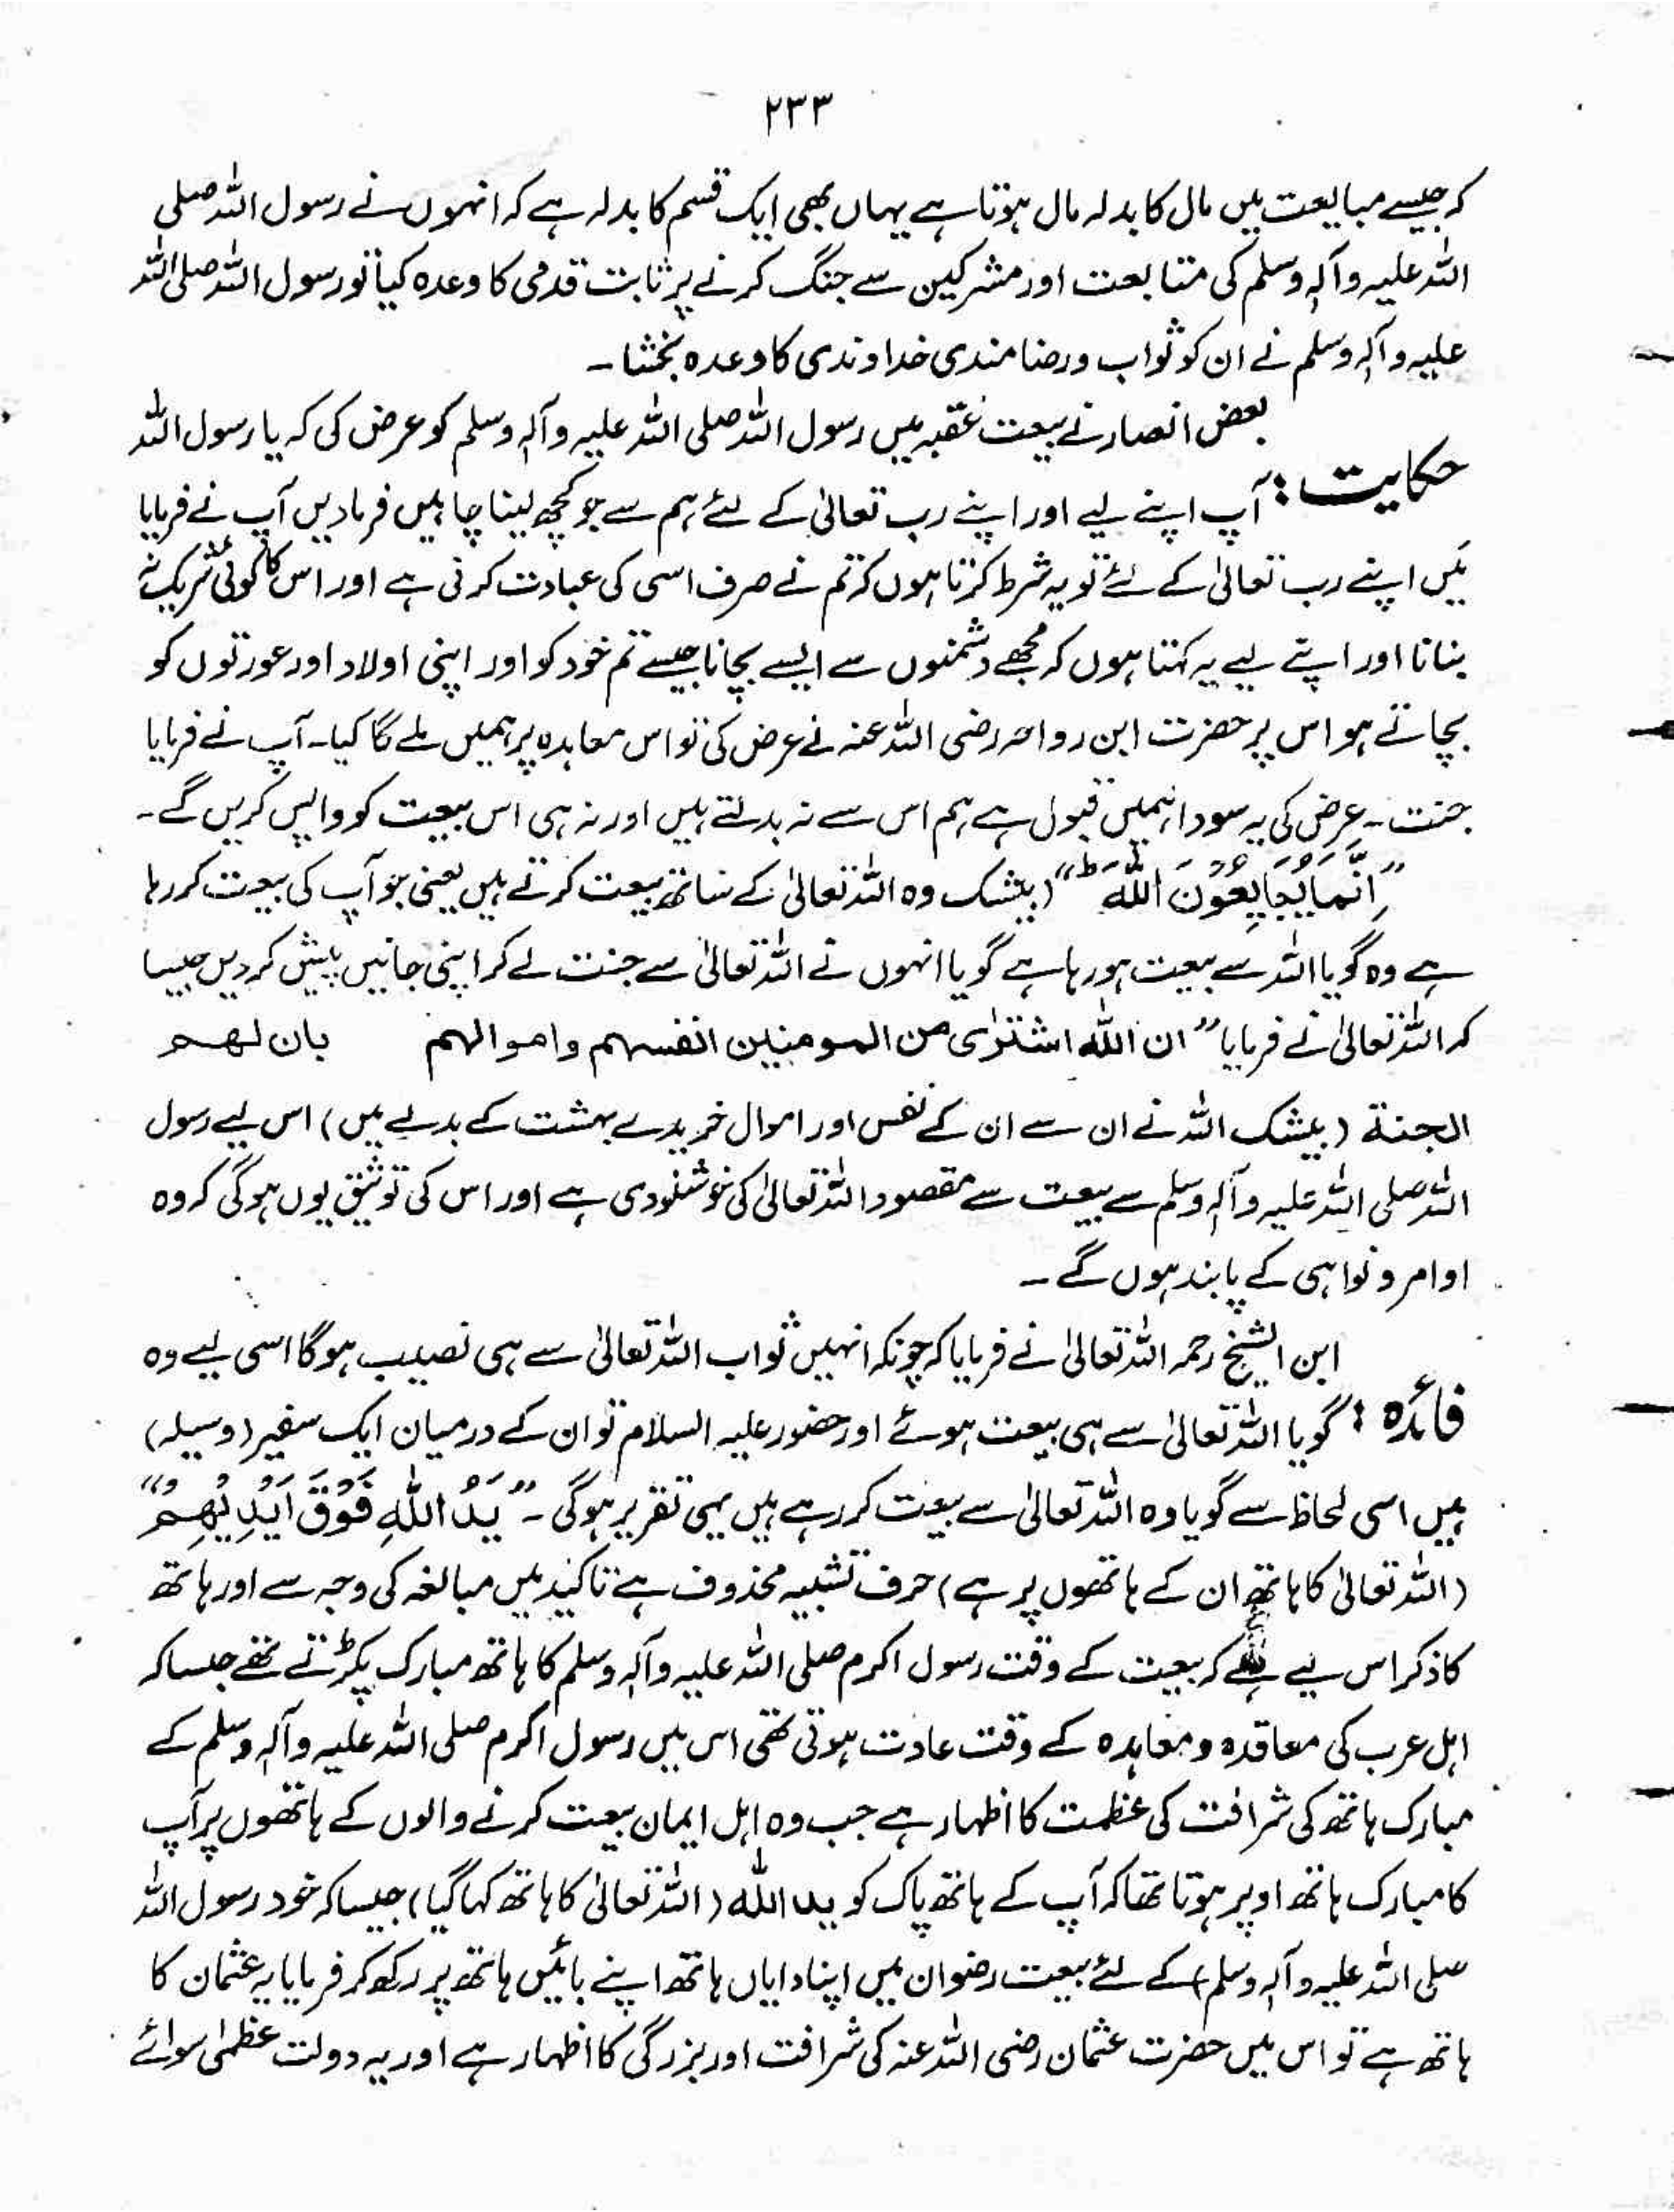 ۲۳۳
کہ جیسے مبایعت میں مال کا بدلہ مال ہوتا ہے یہاں بھی ایک قسم کا بدلہ ہے کہ انہوں نے رسول اللہ صلی
اللہ علیہ وآلہٖ وسلم کی متابعت اور مشرکین سے جنگ کرنے پر ثابت قدمی کا وعدہ کیا تو رسول اللہ صلی اللہ
علیہ وآلہٖ وسلم نے ان کو ثواب ورضامندی خداوندی کا وعدہ بخشا۔
بعض انصار نے بیعت عقبہ میں رسول اللہ صلی اللہ علیہ وآلہٖ وسلم کو عرض کی کہ یا رسول اللہ
حکایت : آپ اپنے لیے اور اپنے رب تعالیٰ کے لئے ہم سے جو کچھ لینا چاہیں فرمادیں آپ نے فرمایا
میں اپنے رب تعالیٰ کے لئے تو یہ شرط کرتا ہوں کہ تم نے صرف اسی کی عبادت کرنی ہے اور اس کا کوئی شریک نہ
بنانا اور اپنے لیے یہ کہتا ہوں کہ مجھے دشمنوں سے ایسے بچانا جیسے تم خود کو اور اپنی اولاد اور عورتوں کو
بچاتے ہو اس پر حضرت ابن رواحہ رضی اللہ عنہ نے عرض کی تو اس معاہدہ پر ہمیں ملے گا کیا۔ آپ نے فرمایا
جنت۔ عرض کی یہ سودا ہمیں قبول ہے ہم اس سے نہ بدلتے ہیں اور نہ ہی اس بیعت کو واپس کریں گے۔
”اِنَّمَا یُبَایِعُوْنَ اللّٰہَ ط“ (بیشک وہ اللہ تعالیٰ کے ساتھ بیعت کرتے ہیں یعنی جو آپ کی بیعت کر رہا
ہے وہ گویا اللہ سے بیعت ہو رہا ہے گویا انہوں نے اللہ تعالیٰ سے جنت لے کر اپنی جانیں پیش کر دیں جیسا
کہ اللہ تعالیٰ نے فرمایا ”ان اللّٰہ اشترٰی من المومنین انفسہم واموالہم بان لہم
الجنة (بیشک اللہ نے ان سے ان کے نفس اور اموال خریدے بہشت کے بدلے میں) اس لیے رسول
اللہ صلی اللہ علیہ وآلہٖ وسلم سے بیعت سے مقصود اللہ تعالیٰ کی خوشنودی ہے اور اس کی توثیق یوں ہوگی کہ وہ
اوامر و نواہی کے پابند ہوں گے۔
ابن الشیخ رحمہ اللہ تعالیٰ نے فرمایا کہ چونکہ انہیں ثواب اللہ تعالیٰ سے ہی نصیب ہوگا اسی لیے وہ
فائدہ : گویا اللہ تعالیٰ سے ہی بیعت ہوئے اور حضور علیہ السلام تو ان کے درمیان ایک سفیر (وسیلہ)
ہیں اسی لحاظ سے گویا وہ اللہ تعالیٰ سے بیعت کر رہے ہیں یہی تقریر ہوگی۔ ”یَدُ اللّٰہِ فَوْقَ اَیْدِیْھِمْ“
(اللہ تعالیٰ کا ہاتھ ان کے ہاتھوں پر ہے) حرف تشبیہ محذوف ہے تاکید میں مبالغہ کی وجہ سے اور ہاتھ
کا ذکر اس لیے ہے کہ بیعت کے وقت رسول اکرم صلی اللہ علیہ وآلہٖ وسلم کا ہاتھ مبارک پکڑتے تھے جیسا کہ
اہل عرب کی معاقدہ و معاہدہ کے وقت عادت ہوتی تھی اس میں رسول اکرم صلی اللہ علیہ وآلہٖ وسلم کے
مبارک ہاتھ کی شرافت کی عظمت کا اظہار ہے جب وہ اہل ایمان بیعت کرنے والوں کے ہاتھوں پر آپ
کا مبارک ہاتھ اوپر ہوتا تھا کہ آپ کے ہاتھ پاک کو ید اللّٰہ (اللہ تعالیٰ کا ہاتھ کہا گیا) جیسا کہ خود رسول اللہ
صلی اللہ علیہ وآلہٖ وسلم) کے لئے بیعت رضوان میں اپنا دایاں ہاتھ اپنے بائیں ہاتھ پر رکھ کر فرمایا یہ عثمان کا
ہاتھ ہے تو اس میں حضرت عثمان رضی اللہ عنہ کی شرافت اور بزرگی کا اظہار ہے اور یہ دولت عظمٰی سوائے